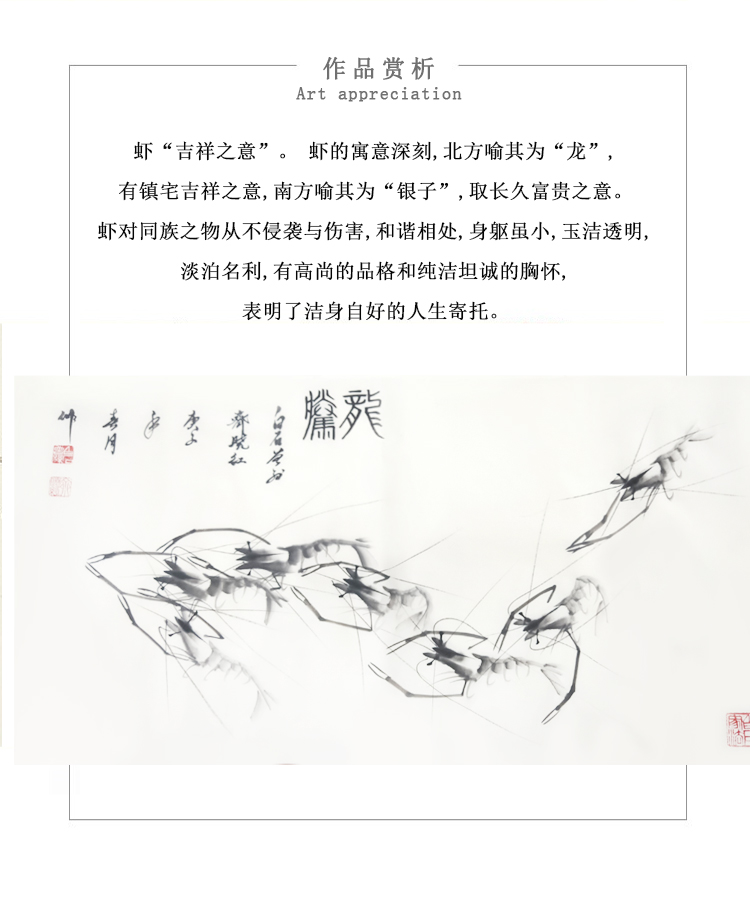 作品赏析
Art appreciation
虾“吉祥之意”。 虾的寓意深刻,北方喻其为“龙”,
有镇宅吉祥之意,南方喻其为“银子”,取长久富贵之意。
虾对同族之物从不侵袭与伤害,和谐相处,身躯虽小,玉洁透明,
淡泊名利,有高尚的品格和纯洁坦诚的胸怀,
表明了洁身自好的人生寄托。
龍
騰
白石
齊曉紅
庚子
年
春月
作